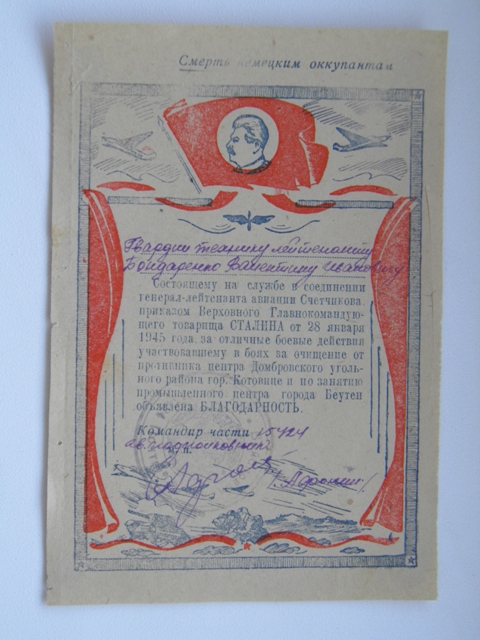 Смерть немецким оккупантам
Гвардии технику лейтенанту
Бондаренко Валентину Ивановичу
Состоящему на службе в соединении
генерал-лейтенанта авиации Счетчикова
приказом Верховного Главнокомандую-
щего товарища СТАЛИНА от 28 января
1945 года за отличные боевые действия
участвовавшему в боях за очищение от
противника центра Домбровского уголь-
ного района гор. Котовице и по занятию
промышленного центра города Беутен
объявлена БЛАГОДАРНОСТЬ.
Командир части 15424